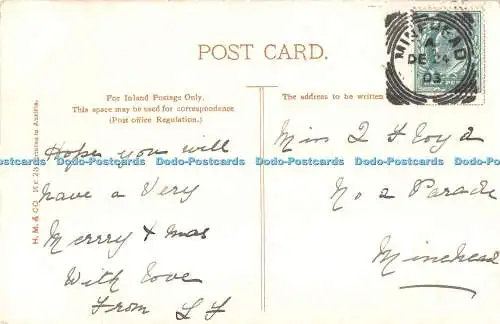 POST CARD.
MINEHEAD
A
DE 24
03
For Inland Postage Only.
This space may be used for correspondence
(Post office Regulation.)
The address to be written
H. M. & CO.
Printed in Austria.
Hope you will
have a Very
Merrry Xmas
With love
From L F
Miss L Floyd
No 2 Parade
Minehead
Dodo-Postcards Dodo-Postcards Dodo-Postcards Dodo-Postcards